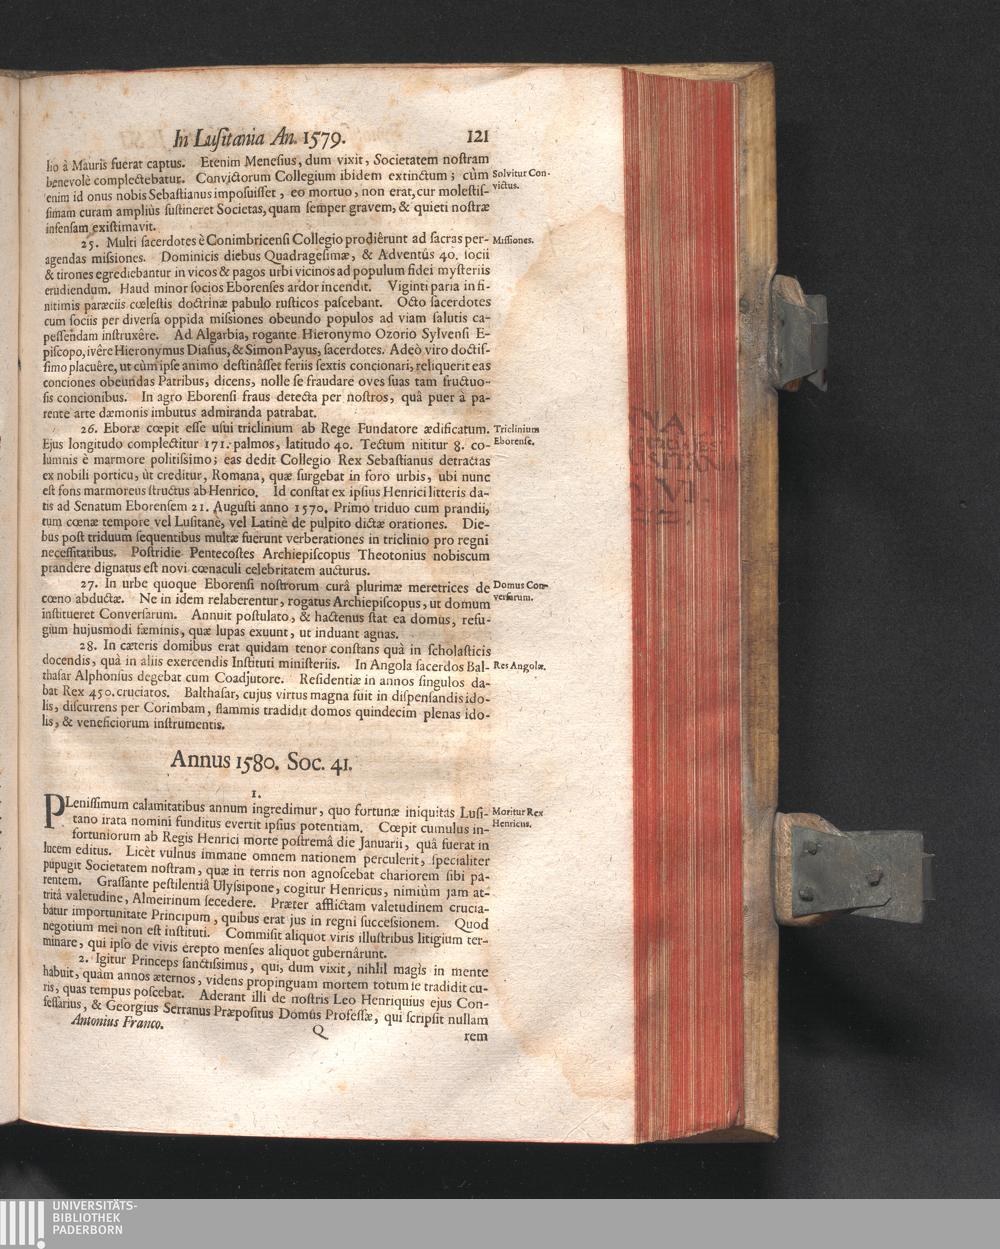 In Luſitania An. 1579. 121
lio à Mauris fuerat captus. Etenim Meneſius, dum vixit, Societatem noſtram
benevolè complectebatur. Convictorum Collegium ibidem extinctum; cùm
Solvitur Con-
victus.
enim id onus nobis Sebaſtianus impoſuiſſet, eo mortuo, non erat, cur moleſtiſ-
ſimam curam ampliùs ſuſtineret Societas, quam ſemper gravem, & quieti noſtræ
infenſam exiſtimavit.
25. Multi ſacerdotes è Conimbricenſi Collegio prodiêrunt ad ſacras per-
Miſſiones.
agendas miſsiones. Dominicis diebus Quadrageſimæ, & Adventûs 40. ſocii
& tirones egrediebantur in vicos & pagos urbi vicinos ad populum fidei myſteriis
erudiendum. Haud minor ſocios Eborenſes ardor incendit. Viginti paria in fi-
nitimis paræciis cœleſtis doctrinæ pabulo ruſticos paſcebant. Octo ſacerdotes
cum ſociis per diverſa oppida miſsiones obeundo populos ad viam ſalutis ca-
peſſendam inſtruxêre. Ad Algarbia, rogante Hieronymo Ozorio Sylvenſi E-
piſcopo, ivêre Hieronymus Diaſius, & Simon Payus, ſacerdotes. Adeò viro doctiſ-
ſimo placuêre, ut cùm ipſe animo deſtinâſſet feriis ſextis concionari, reliquerit eas
conciones obeundas Patribus, dicens, nolle ſe fraudare oves ſuas tam fructuo-
ſis concionibus. In agro Eborenſi fraus detecta per noſtros, quâ puer à pa-
rente arte dæmonis imbutus admiranda patrabat.
26. Eboræ cœpit eſſe uſui triclinium ab Rege Fundatore ædificatum.
Triclinium
Eborenſe.
Ejus longitudo complectitur 171. palmos, latitudo 40. Tectum nititur 8. co-
lumnis è marmore politiſsimo; eas dedit Collegio Rex Sebaſtianus detractas
ex nobili porticu, ùt creditur, Romana, quæ ſurgebat in foro urbis, ubi nunc
eſt fons marmoreus ſtructus ab Henrico. Id conſtat ex ipſius Henrici litteris da-
tis ad Senatum Eborenſem 21. Auguſti anno 1570. Primo triduo cum prandii,
tum cœnæ tempore vel Luſitanè, vel Latinè de pulpito dictæ orationes. Die-
bus poſt triduum ſequentibus multæ fuerunt verberationes in triclinio pro regni
neceſſitatibus. Poſtridie Pentecoſtes Archiepiſcopus Theotonius nobiscum
prandere dignatus eſt novi cœnaculi celebritatem aucturus.
27. In urbe quoque Eborenſi noſtrorum curâ plurimæ meretrices de
Domus Con-
verſarum.
cœno abductæ. Ne in idem relaberentur, rogatus Archiepiſcopus, ut domum
inſtitueret Converſarum. Annuit poſtulato, & hactenus ſtat ea domus, refu-
gium hujusmodi fæminis, quæ lupas exuunt, ut induant agnas.
28. In cæteris domibus erat quidam tenor conſtans quà in ſcholaſticis
docendis, quà in aliis exercendis Inſtituti miniſteriis. In Angola ſacerdos Bal-
Res Angolæ.
thaſar Alphonſus degebat cum Coadjutore. Reſidentiæ in annos ſingulos da-
bat Rex 450. cruciatos. Balthaſar, cujus virtus magna fuit in diſpenſandis ido-
lis, diſcurrens per Corimbam, flammis tradidit domos quindecim plenas ido-
lis, & veneficiorum inſtrumentis.
Annus 1580. Soc. 41.
1.
PLeniſſimum calamitatibus annum ingredimur, quo fortunæ iniquitas Luſi-
Moritur Rex
Henricus.
tano irata nomini funditus evertit ipſius potentiam. Cœpit cumulus in-
fortuniorum ab Regis Henrici morte poſtremâ die Januarii, quâ fuerat in
lucem editus. Licèt vulnus immane omnem nationem perculerit, ſpecialiter
pupugit Societatem noſtram, quæ in terris non agnoſcebat chariorem ſibi pa-
rentem. Graſſante peſtilentiâ Ulyſsipone, cogitur Henricus, nimiùm jam at-
tritâ valetudine, Almeirinum ſecedere. Præter afflictam valetudinem crucia-
batur importunitate Principum, quibus erat jus in regni ſucceſsionem. Quod
negotium mei non eſt inſtituti. Commiſit aliquot viris illuſtribus litigium ter-
minare, qui ipſo de vivis erepto menſes aliquot gubernârunt.
2. Igitur Princeps ſanctiſsimus, qui, dum vixit, nihil magìs in mente
habuit, quàm annos æternos, videns propinguam mortem totum ſe tradidit cu-
ris, quas tempus poſcebat. Aderant illi de noſtris Leo Henriquius ejus Con-
feſſarius, & Georgius Serranus Præpoſitus Domûs Profeſſæ, qui ſcripſit nullam
Antonius Franco. Q rem
UNIVERSITÄTS-
BIBLIOTHEK
PADERBORN